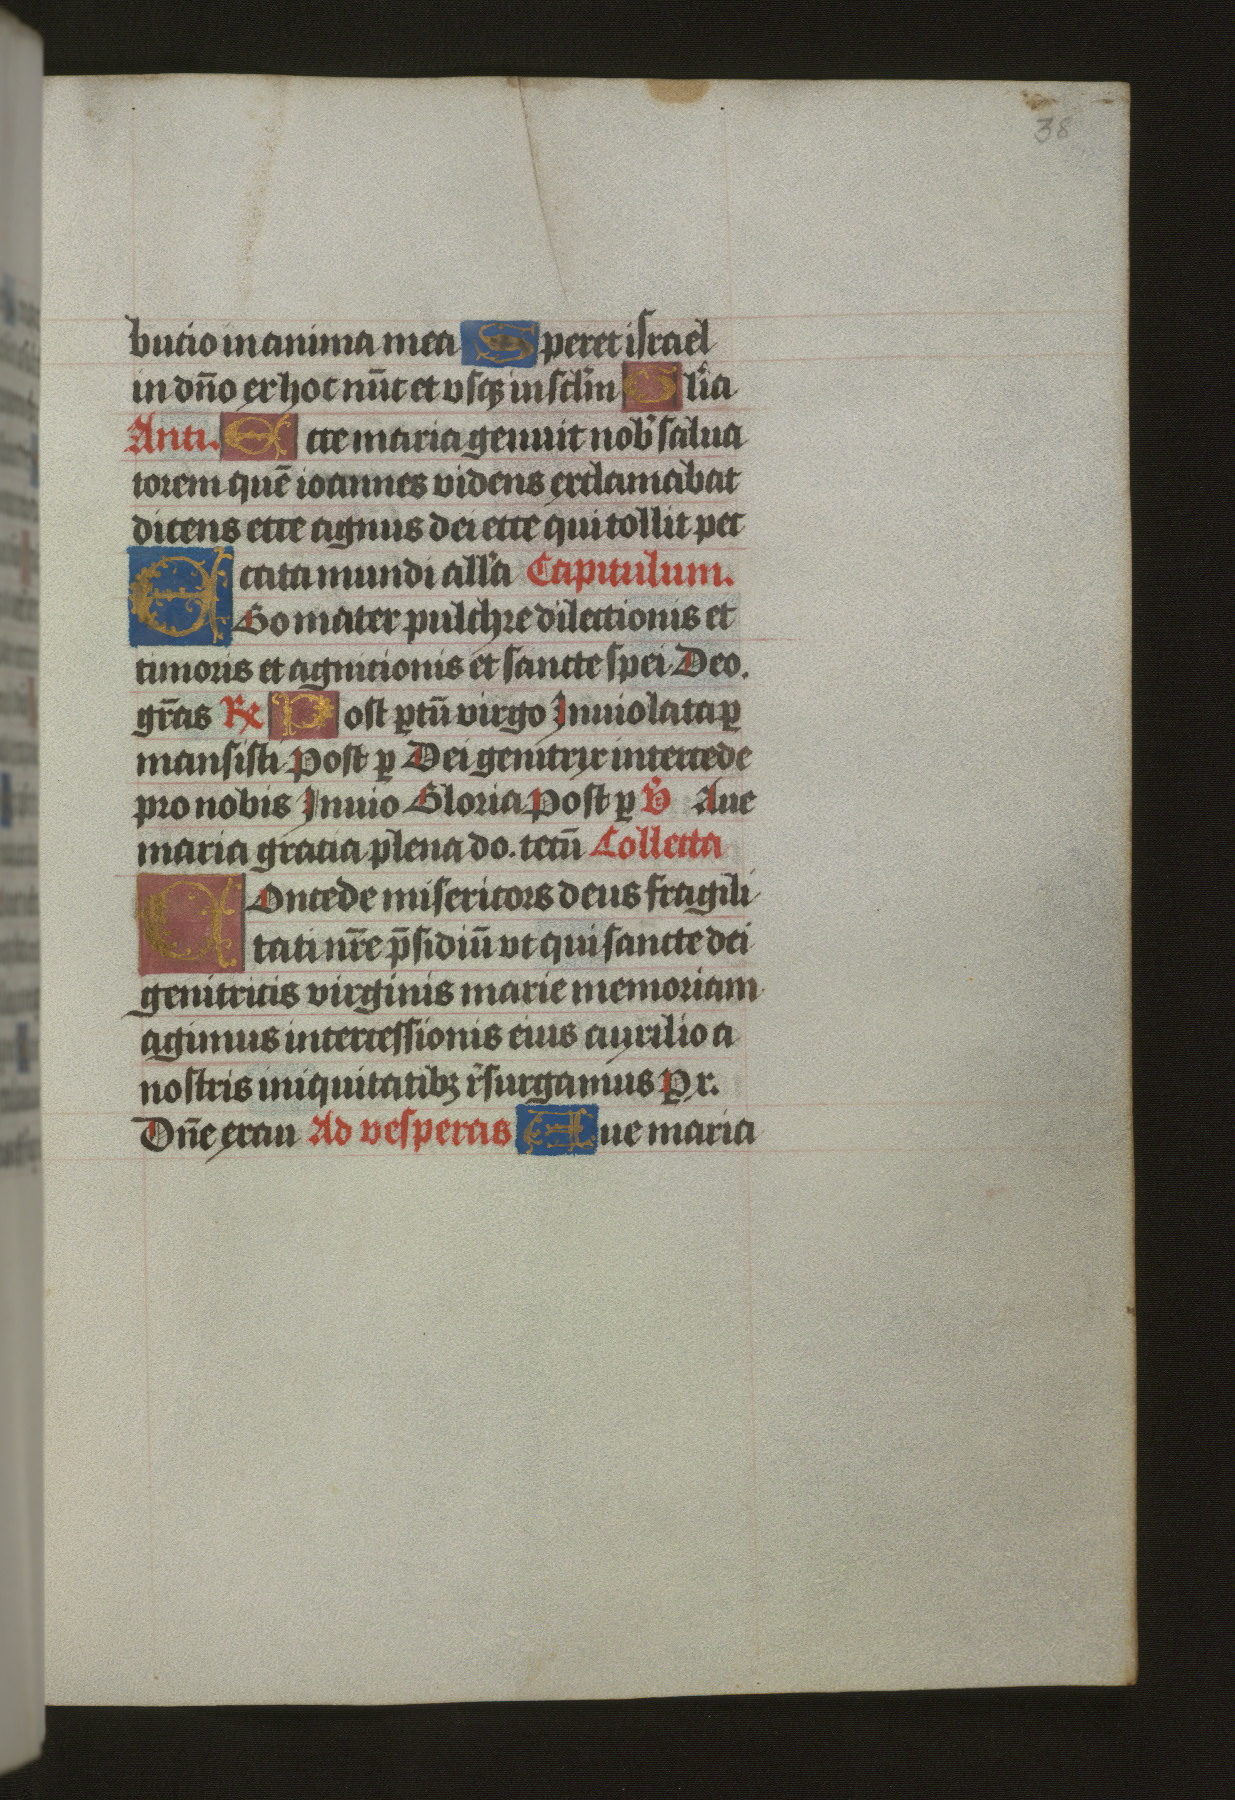 38
butio in anima mea Speret israel
in dn̄o ex hoc nūc et vsqꝫ in sclm̄ Glīa
Anti. Ecce maria genuit nob̄ salua
torem quē ioannes videns exclamabat
dicens ecce agnus dei ecce qui tollit pec
cata mundi all̄a Capitulum.
EGo mater pulchre dilectionis et
timoris et agnitionis et sancte spei Deo.
gr̄as R̷ Post ꝑtū virgo Inuiolata ꝑ
mansisti Post ꝑ Dei genitrix intercede
pro nobis Inuio Gloria Post ꝑ V̄ Aue
maria gratia plena do. tecū Collecta
COncede misericors deus fragili
tati nr̄e p̄sidiū vt qui sancte dei
genitricis virginis marie memoriam
agimus intercessionis eius auxilio a
nostris iniquitatibꝫ r̄surgamus Pr.
Dn̄e exau Ad vesperas Aue maria